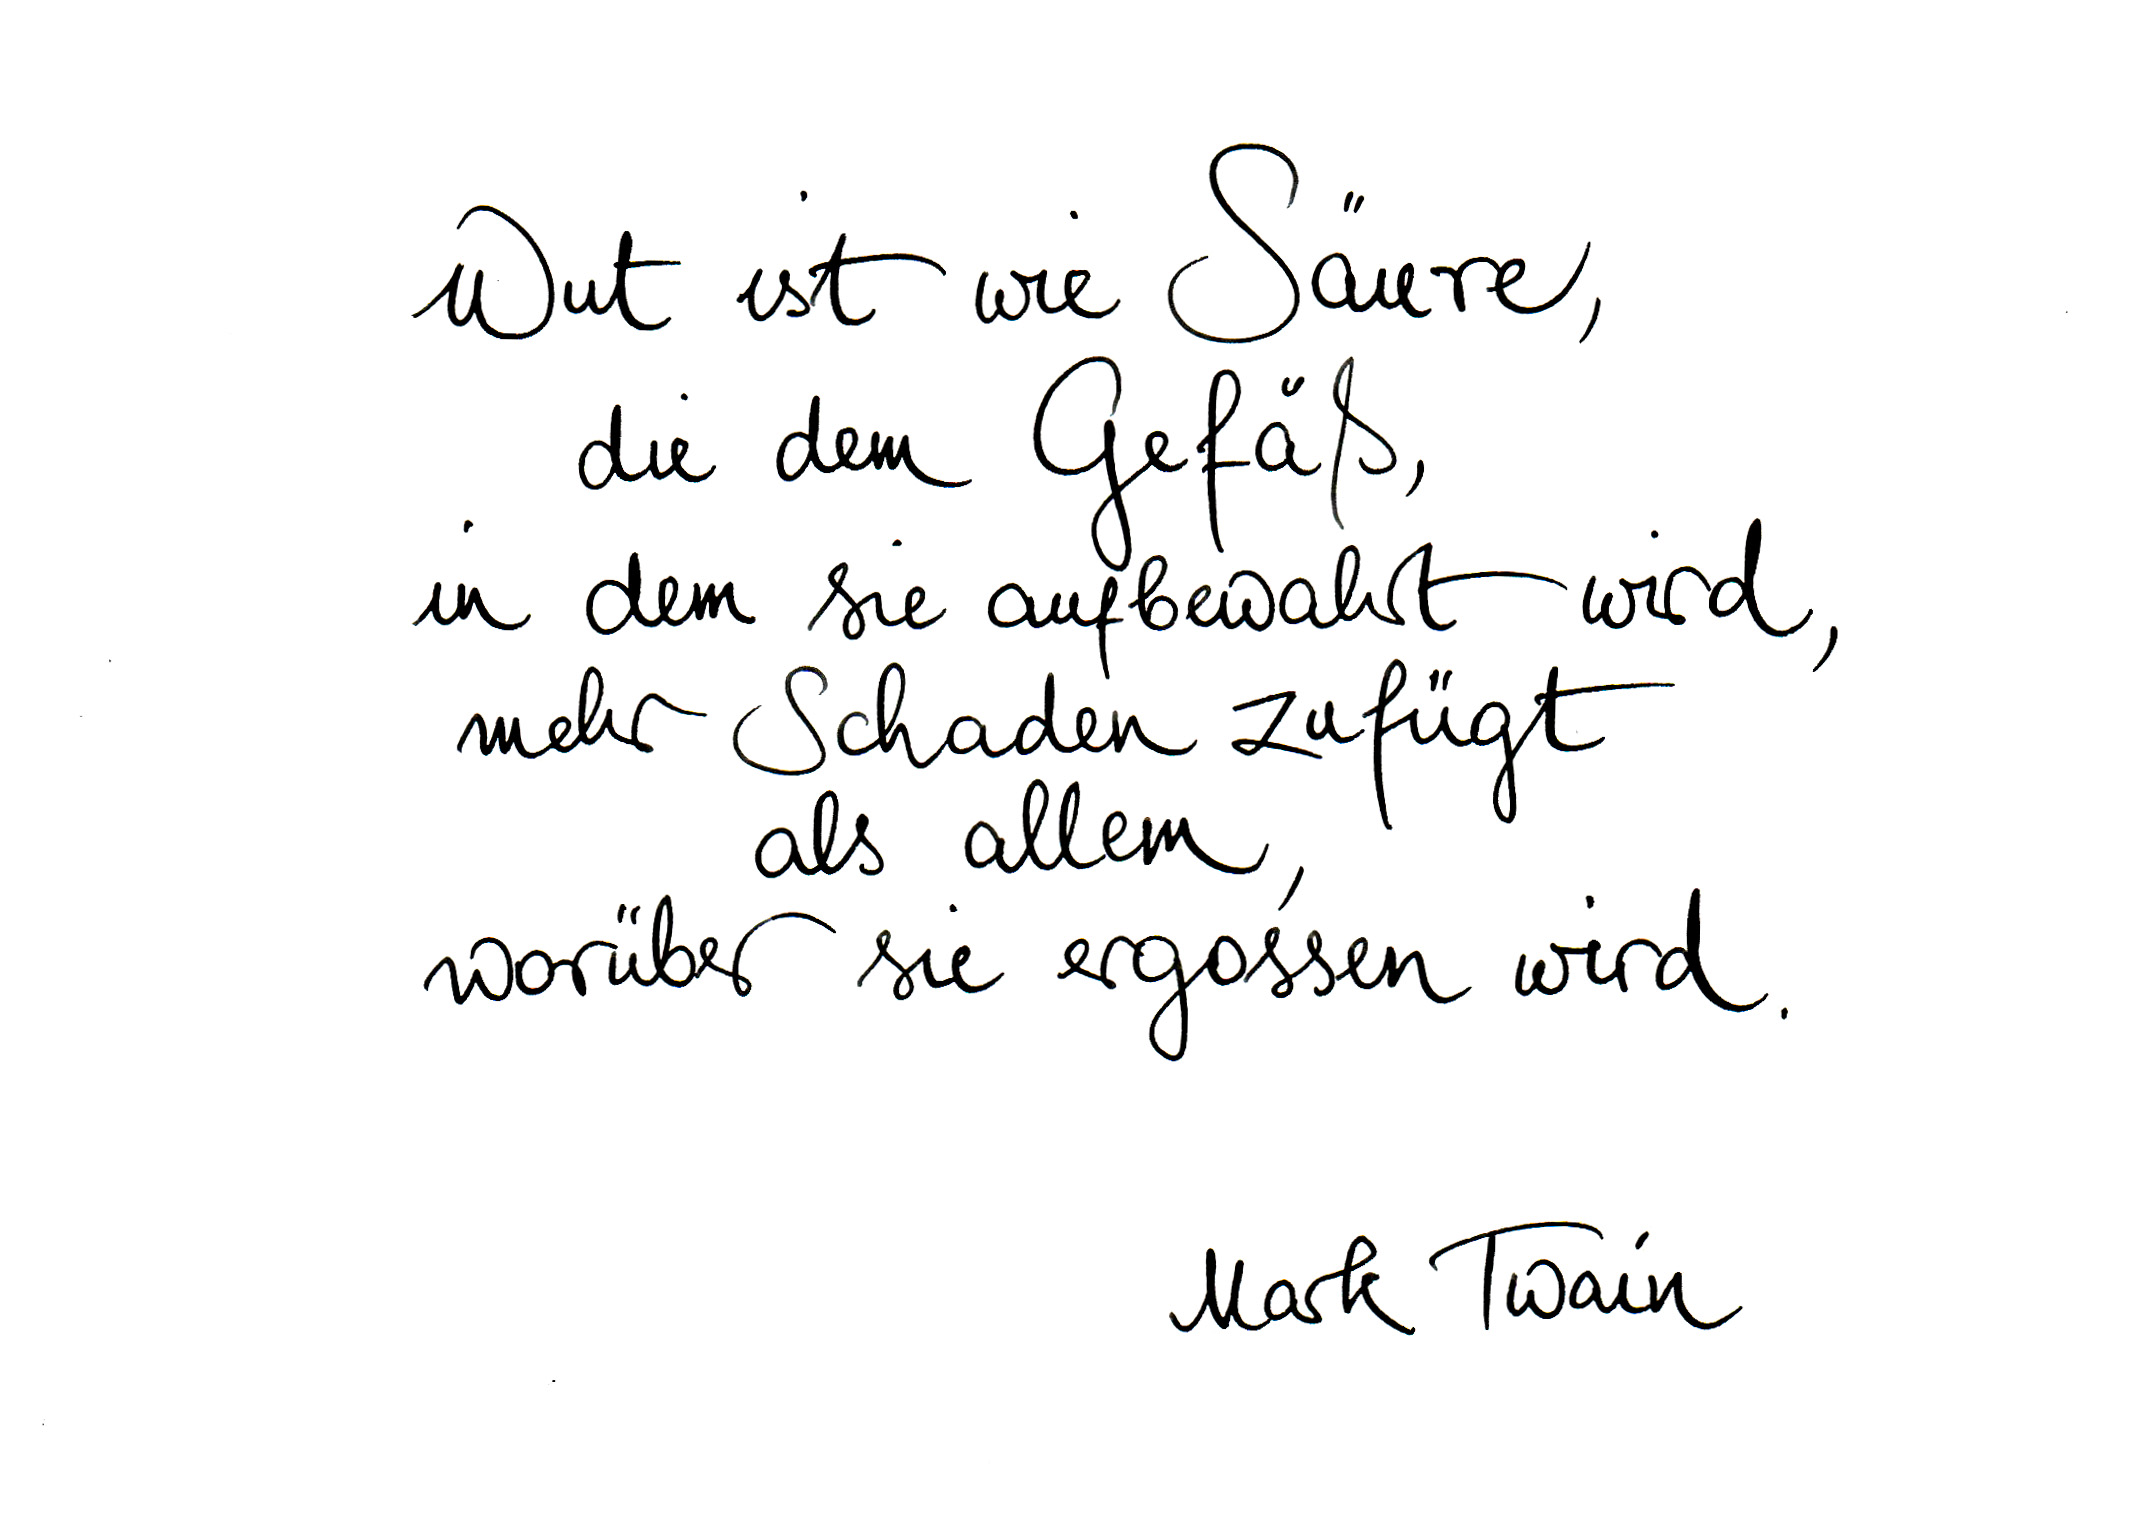 Wut ist wie Säure,
die dem Gefäß,
in dem sie aufbewahrt wird,
mehr Schaden zufügt
als allem,
worüber sie ergossen wird.
Mark Twain